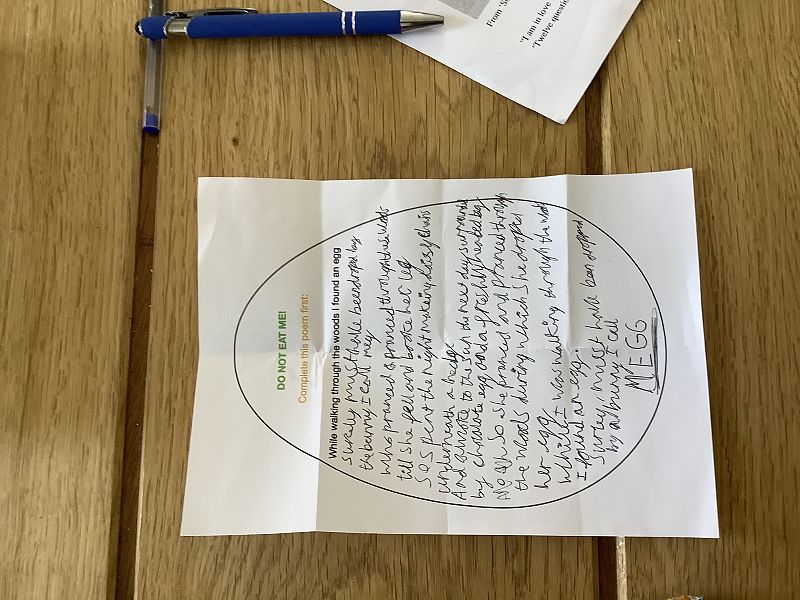 From 'S
"I am in love
"Twelve questio
DO NOT EAT ME!
Complete this poem first:
While walking through the woods I found an egg
Surely must have been droped by
the bunny I call meg
Who pranced & pranced through these woods
till she fell and broke her leg
So Spent the night making daisy chains
underneath a hedge
And awoke to the sun du next day surrounded
by chocolate egg and a freshly healed leg
So she pranced and pranced through
the woods during which she dropped
her egg
Whilst I was walking through the woods
I found an egg.
Surley, must have been dropped
by a bunny I call
MEGG